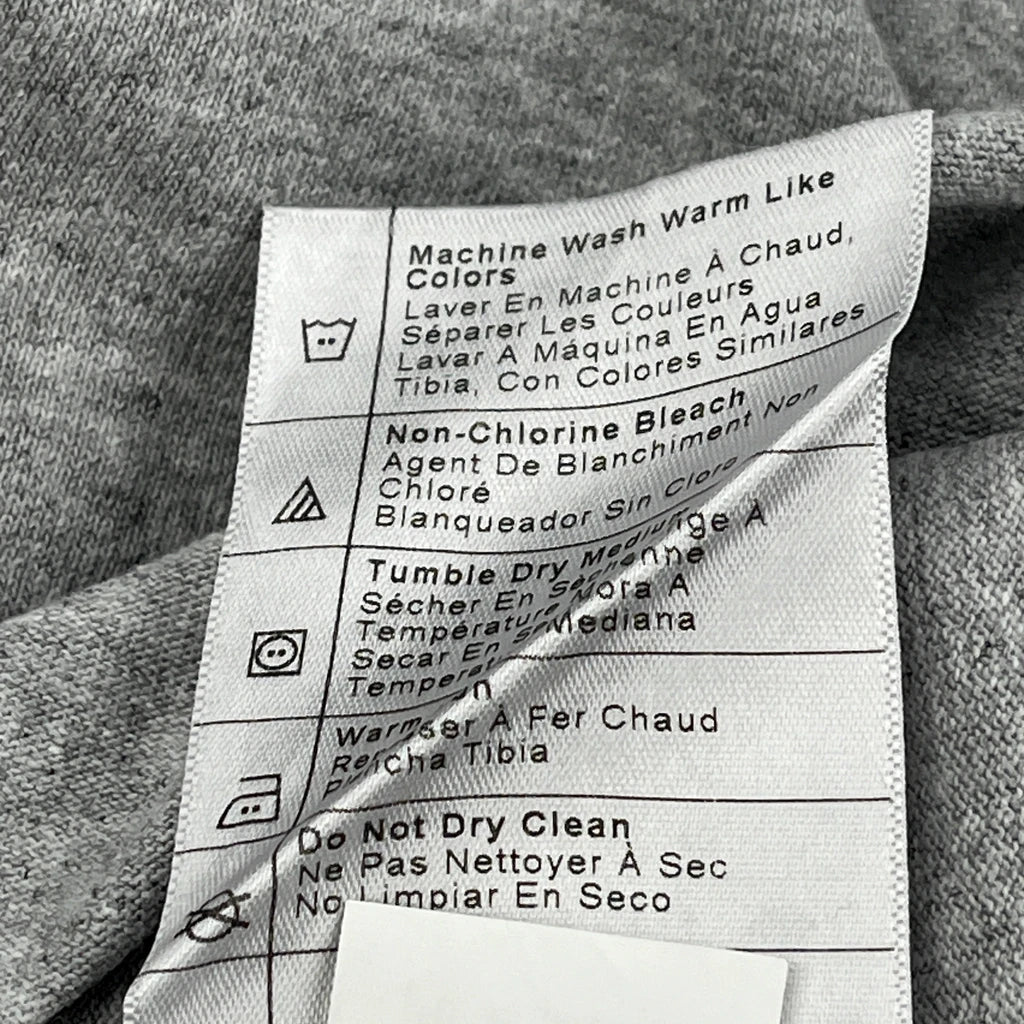 Machine Wash Warm Like
Colors
Laver En Machine À Chaud,
Séparer Les Couleurs
Lavar A Máquina En Agua
Tibia, Con Colores Similares
Non-Chlorine Bleach
Agent De Blanchiment Non
Chloré
Blanqueador Sin Cloro
Tumble Dry Medium
Sécher En À
Température
Secar En A
Mediana
Warm
À Fer Chaud
Tibia
Do Not Dry Clean
Ne Pas Nettoyer À Sec
No Limpiar En Seco